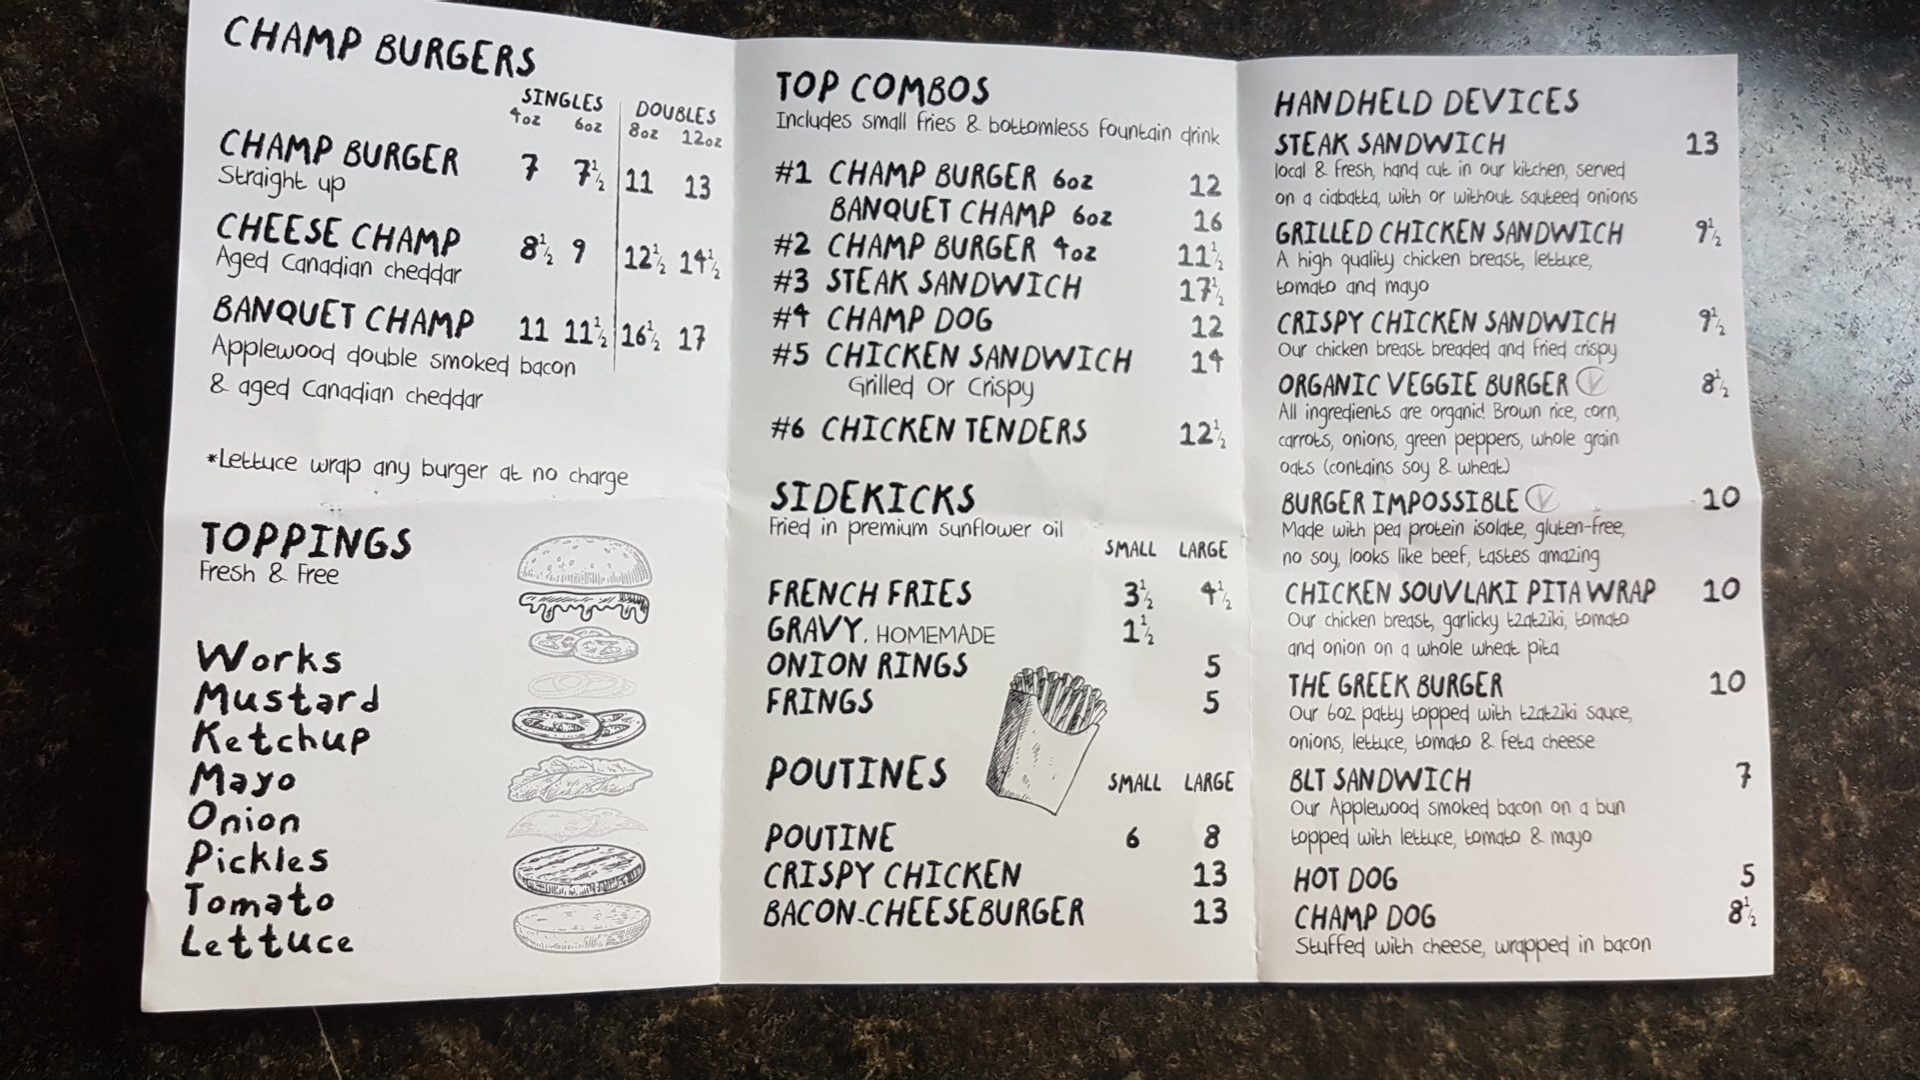 CHAMP BURGERS
SINGLES DOUBLES
4oz 6oz 8oz 12oz
CHAMP BURGER 7 7½ 11 13
Straight up
CHEESE CHAMP 8½ 9 12½ 14½
Aged Canadian cheddar
BANQUET CHAMP 11 11½ 16½ 17
Applewood double smoked bacon
& aged Canadian cheddar
*Lettuce wrap any burger at no charge
TOPPINGS
Fresh & Free
Works
Mustard
Ketchup
Mayo
Onion
Pickles
Tomato
Lettuce
TOP COMBOS
Includes small fries & bottomless fountain drink
#1 CHAMP BURGER 6oz 12
BANQUET CHAMP 6oz 16
#2 CHAMP BURGER 4oz 11½
#3 STEAK SANDWICH 17½
#4 CHAMP DOG 12
#5 CHICKEN SANDWICH 14
Grilled Or Crispy
#6 CHICKEN TENDERS 12½
SIDEKICKS
Fried in premium sunflower oil
SMALL LARGE
FRENCH FRIES 3½ 4½
GRAVY, HOMEMADE 1½
ONION RINGS 5
FRINGS 5
POUTINES SMALL LARGE
POUTINE 6 8
CRISPY CHICKEN 13
BACON-CHEESEBURGER 13
HANDHELD DEVICES
STEAK SANDWICH 13
local & fresh, hand cut in our kitchen, served
on a ciabatta, with or without sauteed onions
GRILLED CHICKEN SANDWICH 9½
A high quality chicken breast, lettuce,
tomato and mayo
CRISPY CHICKEN SANDWICH 9½
Our chicken breast breaded and fried crispy
ORGANIC VEGGIE BURGER V 8½
All ingredients are organic! Brown rice, corn,
carrots, onions, green peppers, whole grain
oats (contains soy & wheat)
BURGER IMPOSSIBLE V 10
Made with pea protein isolate, gluten-free,
no soy, looks like beef, tastes amazing
CHICKEN SOUVLAKI PITA WRAP 10
Our chicken breast, garlicky tzatziki, tomato
and onion on a whole wheat pita
THE GREEK BURGER 10
Our 6oz patty topped with tzatziki sauce,
onions, lettuce, tomato & feta cheese
BLT SANDWICH 7
Our Applewood smoked bacon on a bun
topped with lettuce, tomato & mayo
HOT DOG 5
CHAMP DOG 8½
Stuffed with cheese, wrapped in bacon